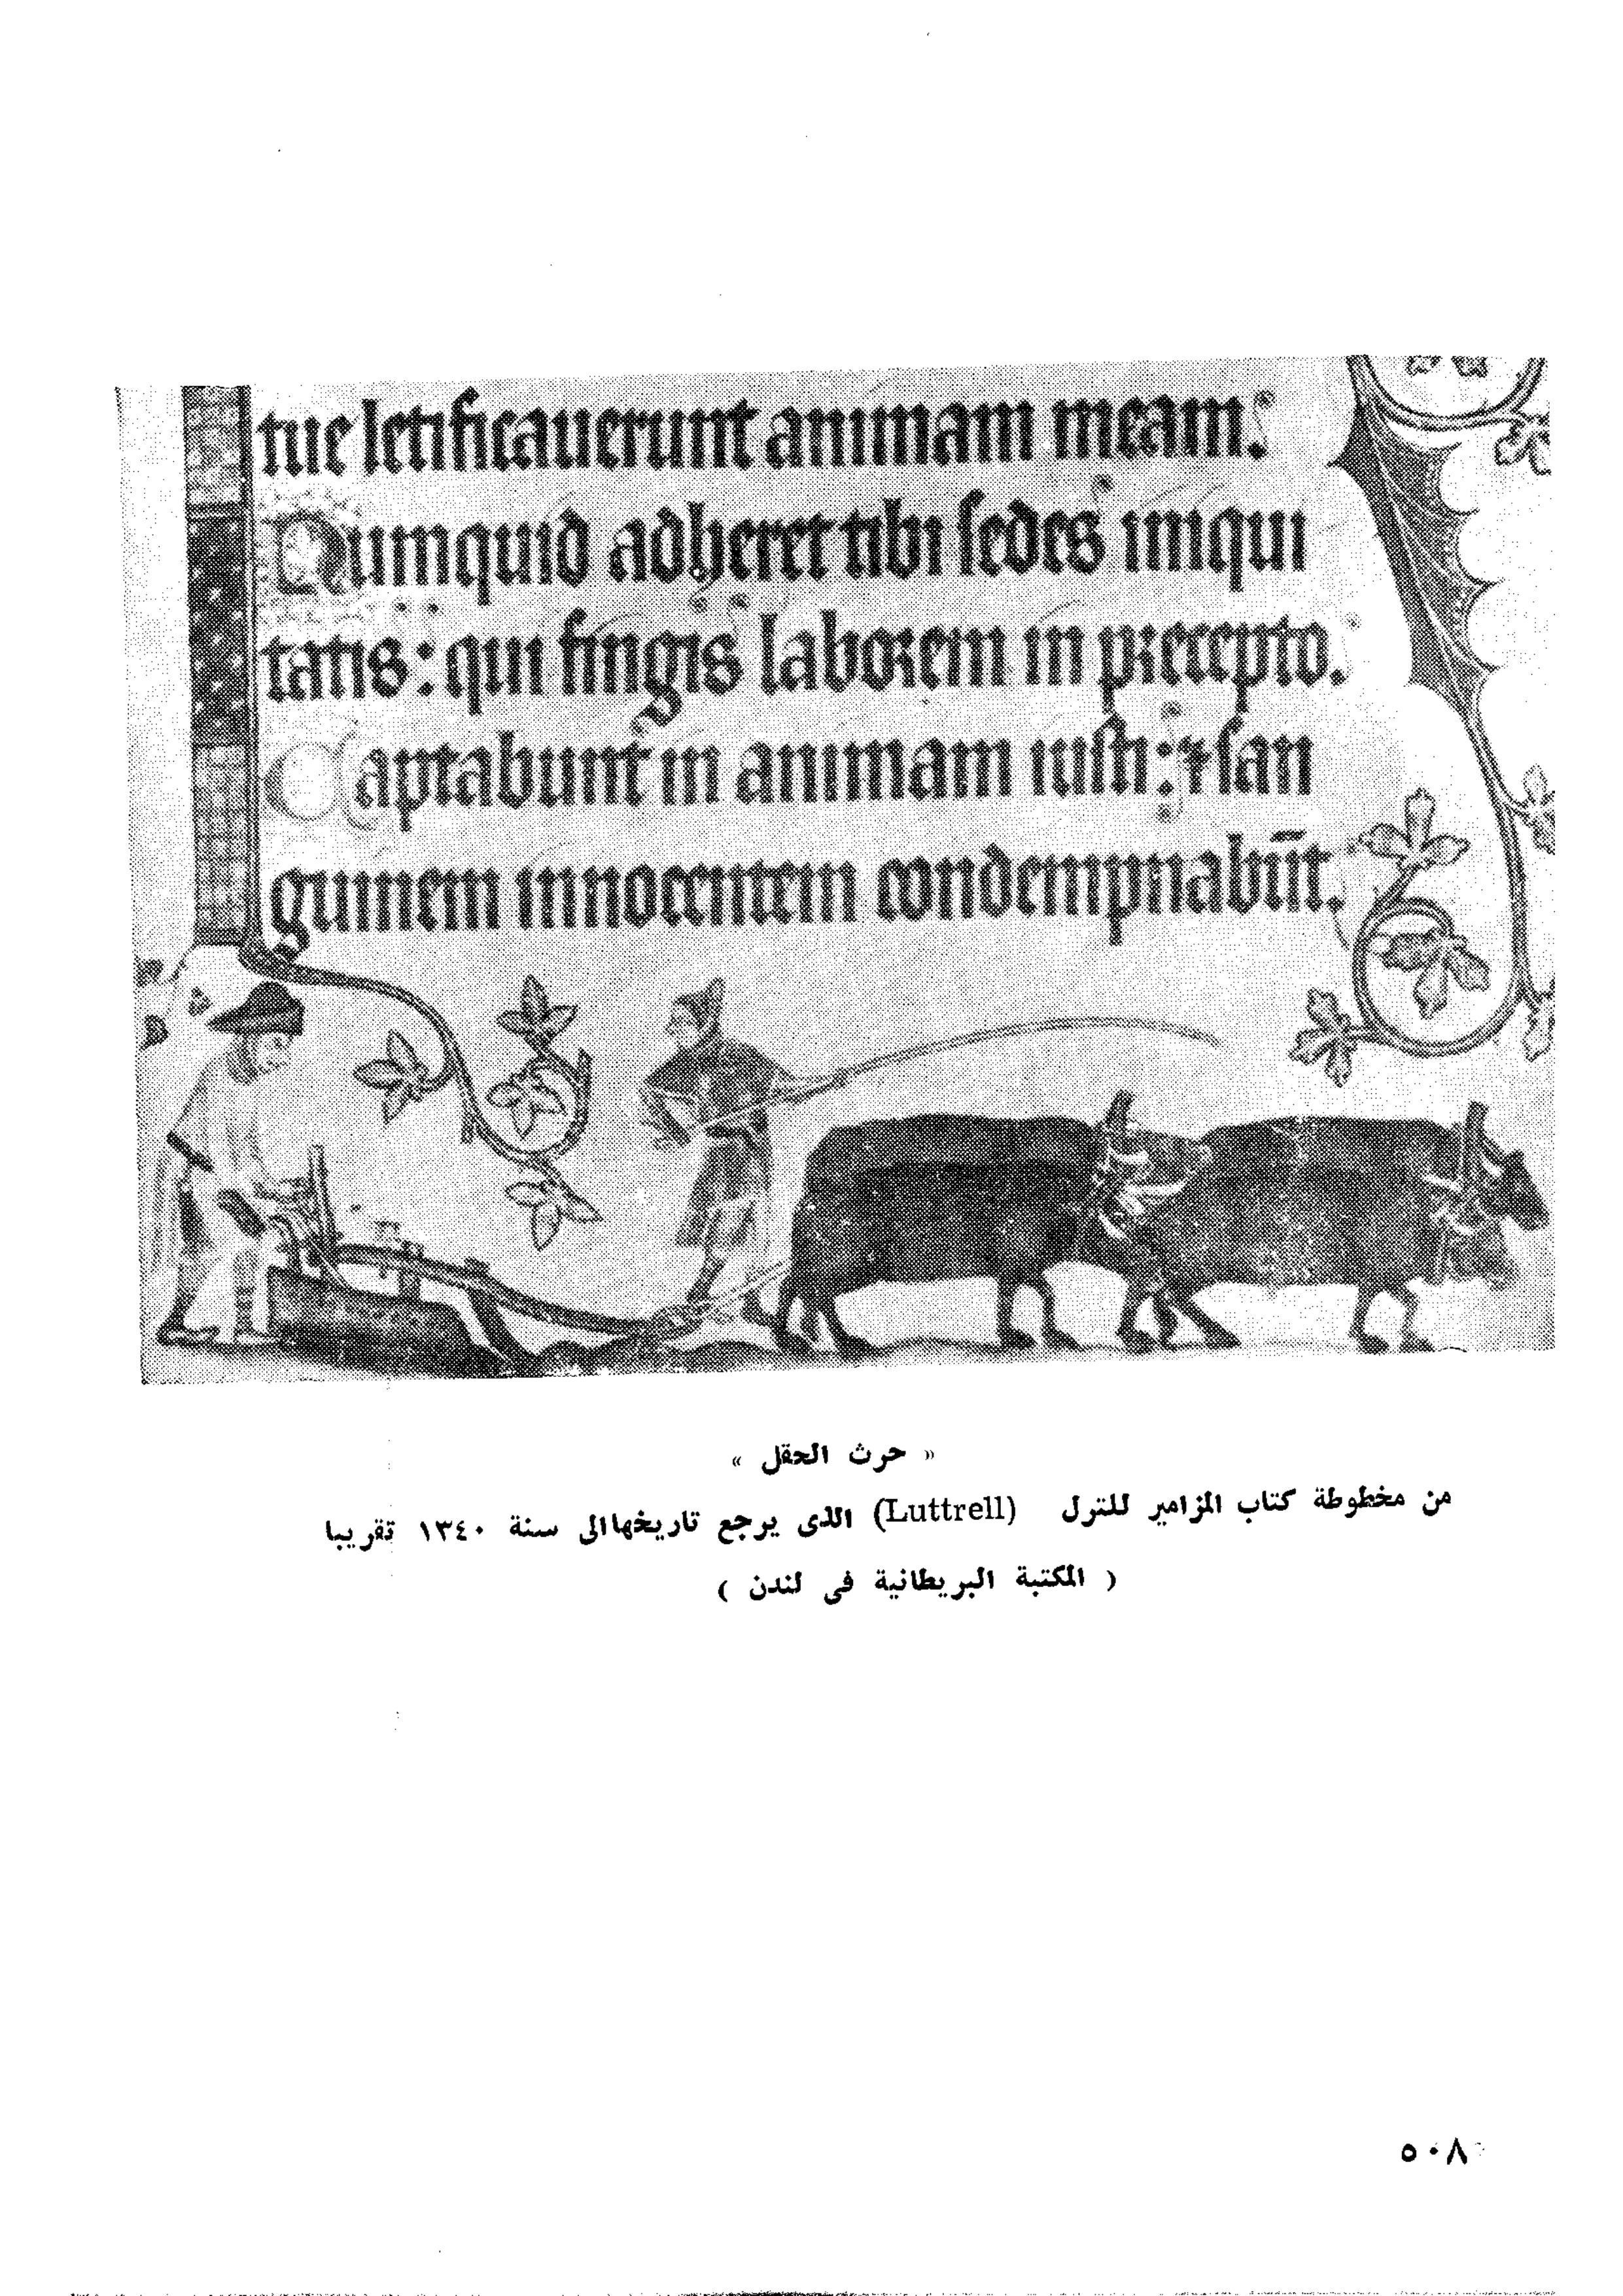 tue letificauerunt animam meam.
Numquid adheret tibi sedes iniqui
tatis: qui fingis laborem in precepto.
Captabunt in animam iusti: ⁊ san
guinem innocentem condempnabūt.
« حرث الحقل »
من مخطوطة كتاب المزامير للترل (Luttrell) الذى يرجع تاريخها الى سنة ١٣٤٠ تقريبا
( المكتبة البريطانية فى لندن )
٥٠٨